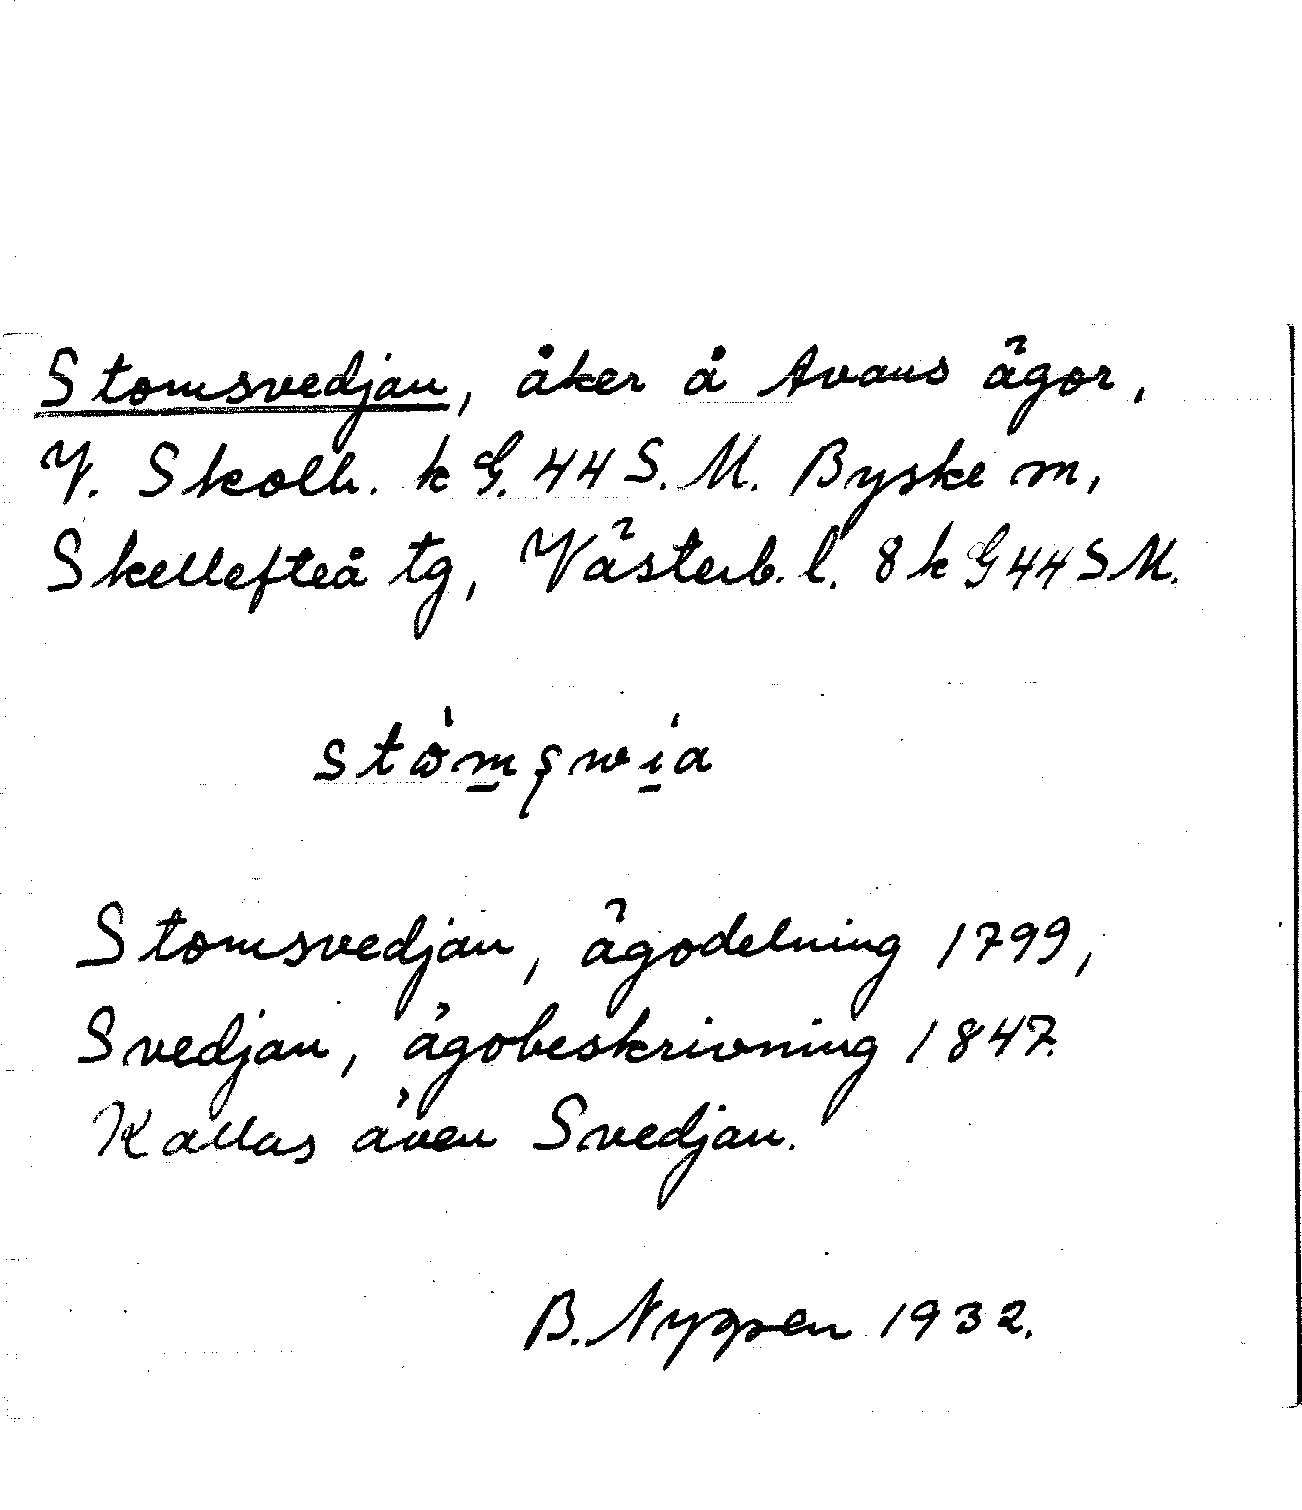 Stomsvedjan, åker å Avans ägor,
V. Skolh. k G. 44 S. M. Byske m,
Skellefteå tg, Västerb. l. 8 k G 44 S M.
Stomsvedjan, ägodelning 1799,
Svedjan, ägobeskrivning 1847.
Kallas även Svedjan.
B. Nyppen 1932.